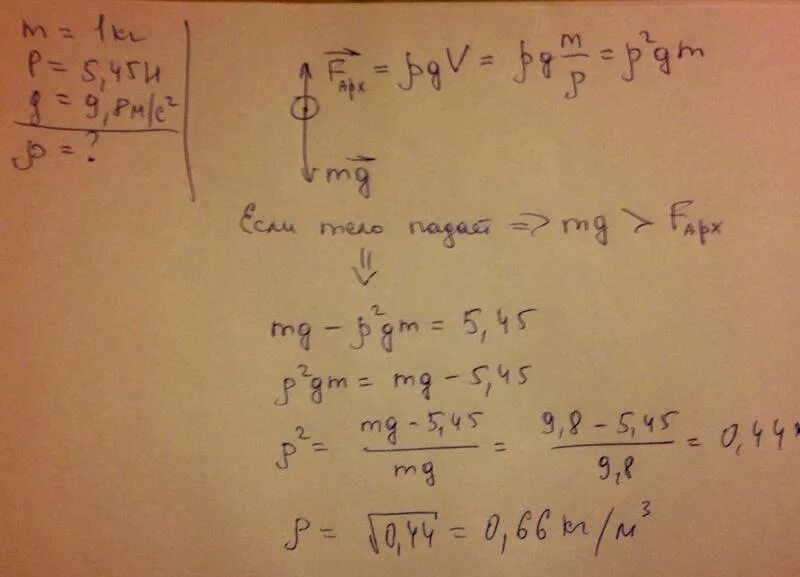 m = 1кг
P = 5,45Н
g = 9,8м/с²
ρ = ?
F⃗Арх = ρgV = ρg m/ρ = ρ²gm
mg⃗
Если тело падает => mg > FАрх
⇓
mg - ρ²gm = 5,45
ρ²gm = mg - 5,45
ρ² = (mg - 5,45)/mg = (9,8 - 5,45)/9,8 = 0,44
ρ = √0,44 = 0,66 кг/м³